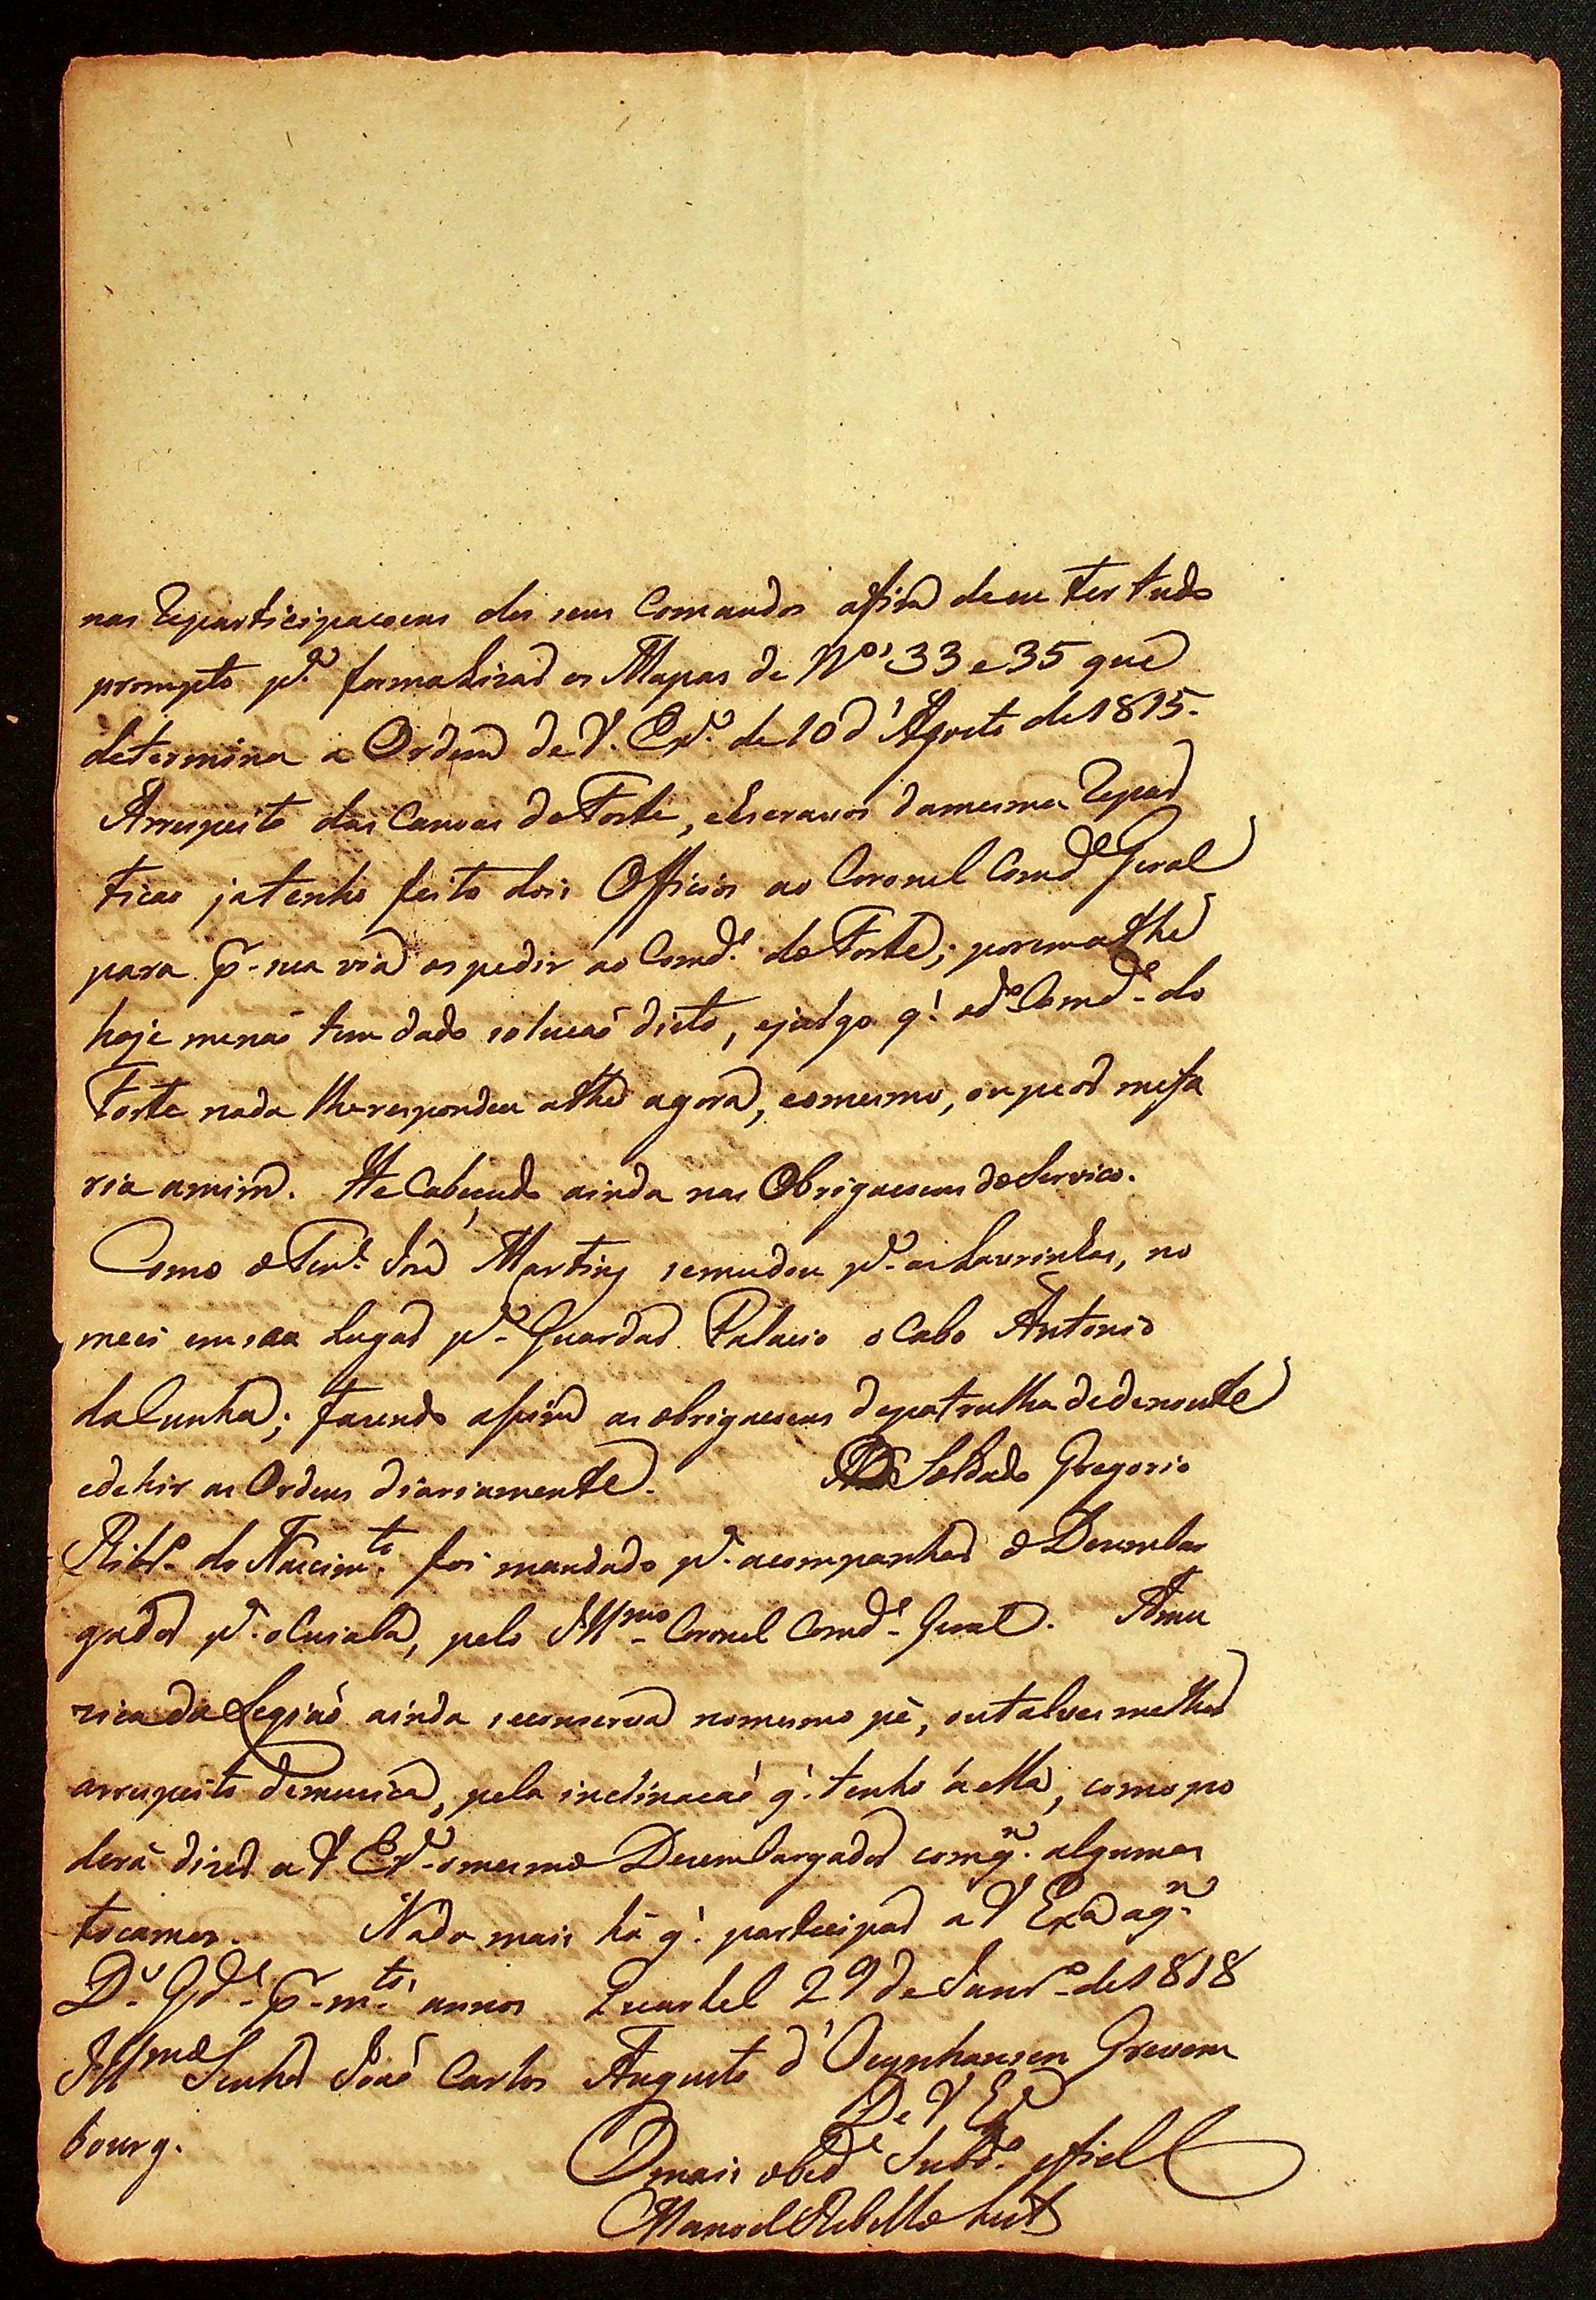 nas Reparticipacoens dos seus Comandos afim deeu ter tudo
prompto pª. formalizar os Mapas de Nºˢ 33 e 35 que
determina a Ordem de V. Exª. de 10 d'Agosto de 1815.
Arrespeito das Canoas do Forte, eEscravos damesma Repar
ticao jatenho feito dois Officios ao Coronel Comdᵉ Geral
para p̃-sua via os pedir ao Comdᵉ. do Forte; poremathe
hoje menaõ tem dado solucaõ disto, ejulgo q'. odº Comdᵉ- do
Forte nada lherespondeu athe agora, eomesmo, oupeor mefa
ria amim. He Cabeçudo ainda nas Obrigacoens doServico.
Como oTenᵉ. José Martins semudou pª- as Lavrinhas, no
meei emseu lugar pª- Guardar Palacio o Cabo Antonio
daCunha; fazendo assim as obrigacoens depatrulha dedenoute
edehir as Ordens diariamente. O Soldado Gregorio
Ribrº- do Nascimᵗᵒ. foi mandado pª- acompanhar o Dezembar
gador pª. oCuiabá, pelo Illᵐᵒ- Coronel Comdᵉ- Geral. Amu
zica da Legiaõ ainda seconserva nomesmo pé, outalves melhor
arrespeito demusica, pela inclinacaõ q'. tenho á ella, comopo
derá dizer a V Exª- omesmo Dezembargador comqᵐ. algumas
tocamos. Nada mais há q'. participar a V Exa aqᵐ-
Dˢ- Gdᵉ- p̃-mᵗᵒˢ annos Quartel 29 de Janrº- de 1818
Illᵐᵒ Senhor Joaõ Carlos Augusto d'Oeynhausen Grevem
bourg.
De V. Exª
Omais obedᵉ Subdº- efiel
Manoel Rebello